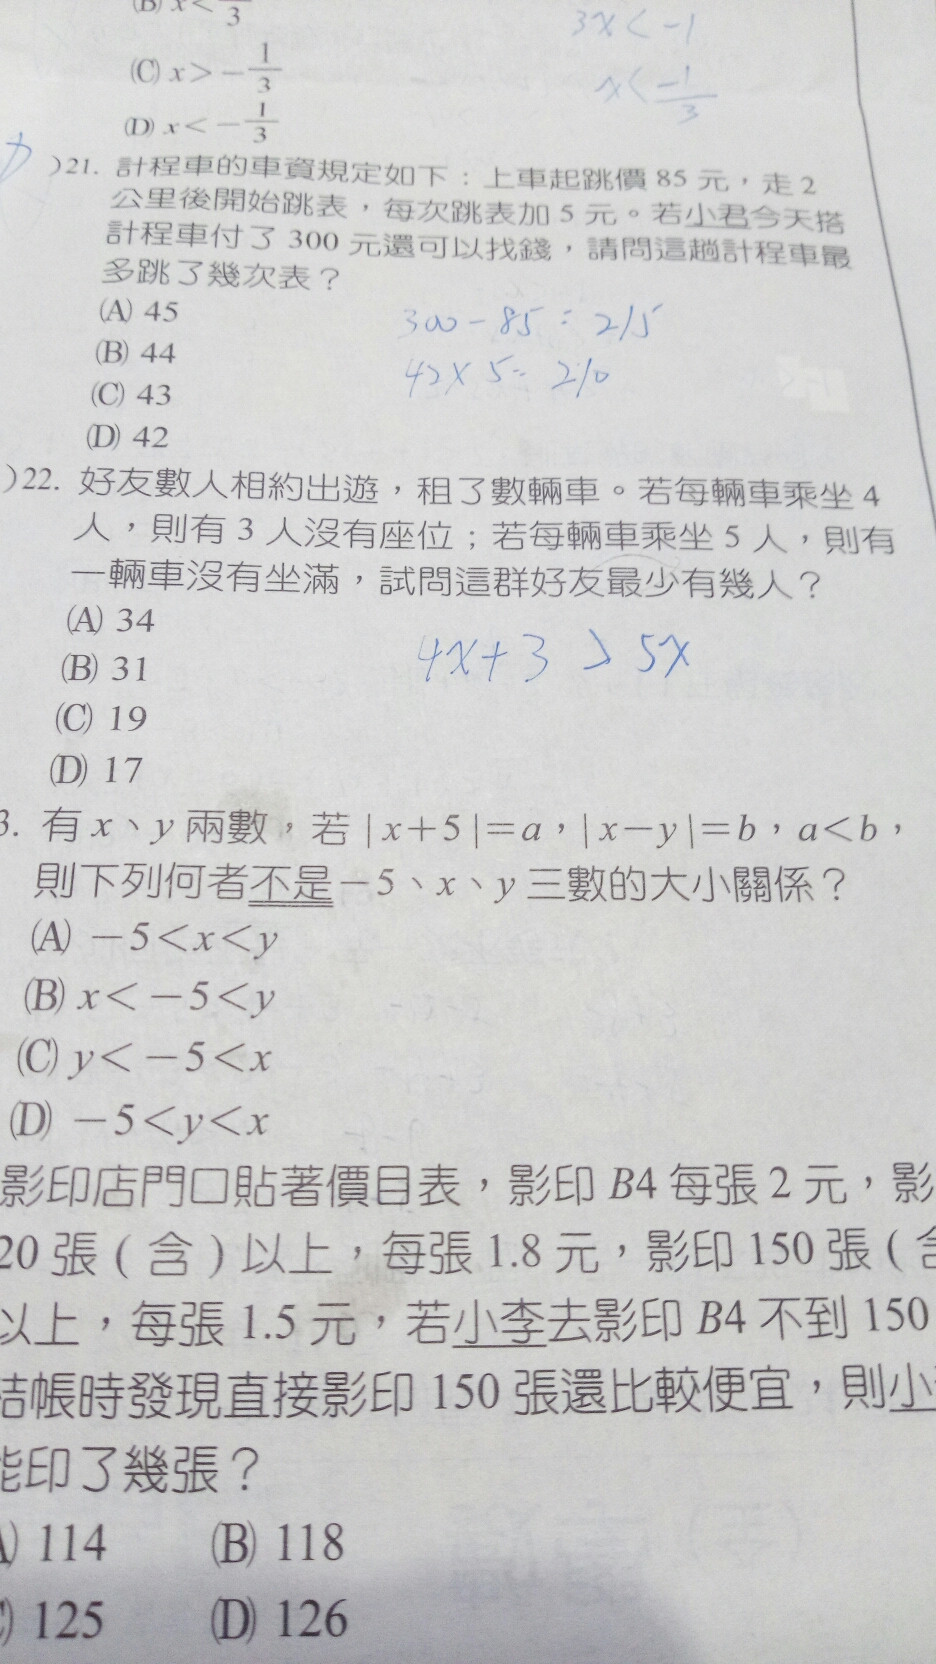 (B) x<
3
3x<-1
(C) x>-1/3
x<-1/3
(D) x<-1/3
)21. 計程車的車資規定如下：上車起跳價 85 元，走 2
公里後開始跳表，每次跳表加 5 元。若小君今天搭
計程車付了 300 元還可以找錢，請問這趟計程車最
多跳了幾次表？
(A) 45
300-85=215
(B) 44
42×5=210
(C) 43
(D) 42
)22. 好友數人相約出遊，租了數輛車。若每輛車乘坐 4
人，則有 3 人沒有座位；若每輛車乘坐 5 人，則有
一輛車沒有坐滿，試問這群好友最少有幾人？
(A) 34
4x+3>5x
(B) 31
(C) 19
(D) 17
3. 有 x、y 兩數，若 |x+5|=a，|x-y|=b，a<b，
則下列何者不是-5、x、y 三數的大小關係？
(A) -5<x<y
(B) x<-5<y
(C) y<-5<x
(D) -5<y<x
影印店門口貼著價目表，影印 B4 每張 2 元，影
20 張(含)以上，每張 1.8 元，影印 150 張(含
以上，每張 1.5 元，若小李去影印 B4 不到 150
結帳時發現直接影印 150 張還比較便宜，則小
能印了幾張？
A) 114 (B) 118
C) 125 (D) 126